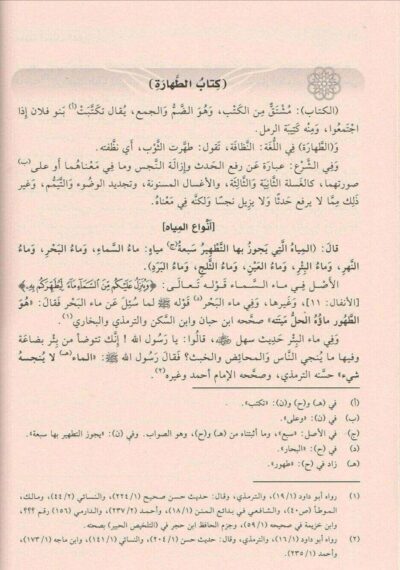 (كِتابُ الطَّهارَةِ)
(الكتاب): مُشْتَقٌّ مِن الكَتْبِ، وَهُوَ الضَّمُّ والجمع، يُقال تكَتَّبَتْ(أ) بَنو فلان إذا
اجْتَمعُوا، وَمِنْه كَتِيبَة الرمل.
وَ(الطَّهارة) فِي اللُّغَة: النَّظافَة، تَقول: طهَّرت الثَّوْب، أي نظَّفته.
وَفِي الشَّرْع: عبارَة عَن رفع الحَدث وإزالَة النَّجس وما فِي مَعْناهُما أو على(ب)
صورتهما، كالغَسلة الثَّانِيَة والثَّالِثَة، والأغسال المسنونة، وتجديد الوضُوء والتَّيَمُّم، وَغير
ذَلِك مِمَّا لا يرفع حَدثًا ولا يزيل نجسًا وَلكنَّه فِي مَعْناهُ.
[أنْواع المِياه]
قالَ: (المِياهُ الَّتِي يَجوزُ بها التَّطْهِيرُ سَبعةُ(ج) مِياهٍ: ماءُ السَّماءِ، وَماءُ البَحْرِ، وَماءُ
النَّهرِ، وَماءُ البِئْرِ، وَماءُ العَيْنِ، وَماءُ الثَّلْجِ، وَماءُ البَرَدِ).
الأصْل فِي ماء السَّماء قَوْله تَعالَى: ﴿وَيُنَزِّلُ عَلَيْكُم مِّنَ السَّمَاءِ مَاءً لِّيُطَهِّرَكُم بِهِ﴾
[الأنفال: ١١]، وَغَيرها، وَفِي ماء البَحْر(د) قَوْله ﷺ لما سُئِلَ عَن ماء البَحْر فَقالَ: «هُوَ
الطَّهُور ماؤُهُ الْحلُّ مَيتَته» صححه ابن حبان وابن السكن والترمذي والبخاري(١).
وَفِي ماء البِئْر حَدِيث سهل ﷺ، قالُوا: يا رَسُول الله ! إنَّك تتوضأ من بِئْر بضاعَة
وفيها ما يُنجي النَّاس والمحائض والخبث؟ فَقالَ رَسُول الله ﷺ: «الماء(هـ) لا يُنجسهُ
شيء» حسَّنه الترمذي، وصححه الإمام أحمد وغيره(٢).
(أ) في (هـ) و(ح) و(ن): «تكتب».
(ب) في (ن): «وعلى».
(ج) في الأصل: «سبع»، وما أثبتناه من (هـ) و(ح)، وهو الصواب. وفي (ن): «يجوز التطهير بها سبعة».
(د) في (ح): «البحار».
(هـ) زاد في (ح): «طهور».
(١) رواه أبو داود (١/١٩)، والترمذي، وقال: حديث حسن صحيح (١/٢٢٤)، والنسائي (٢/٤٤)، ومالك،
الموطأ (ص٤٠)، والشافعي في بدائع المنن (١/١٨)، وأحمد (٢/٢٣٧)، والدارمي (١٥٦) رقم ؟؟؟،
وابن خزيمة في صحيحه (١/٥٩)، وجزم الحافظ ابن حجر في (التلخيص الحبير) بصحته.
(٢) رواه أبو داود (١/١٦)، والترمذي، وقال: حديث حسن (١/٢٠٤)، والنسائي (١/١٤١)، وابن ماجه (١/١٧٣)،
وأحمد (١/٢٣٥).